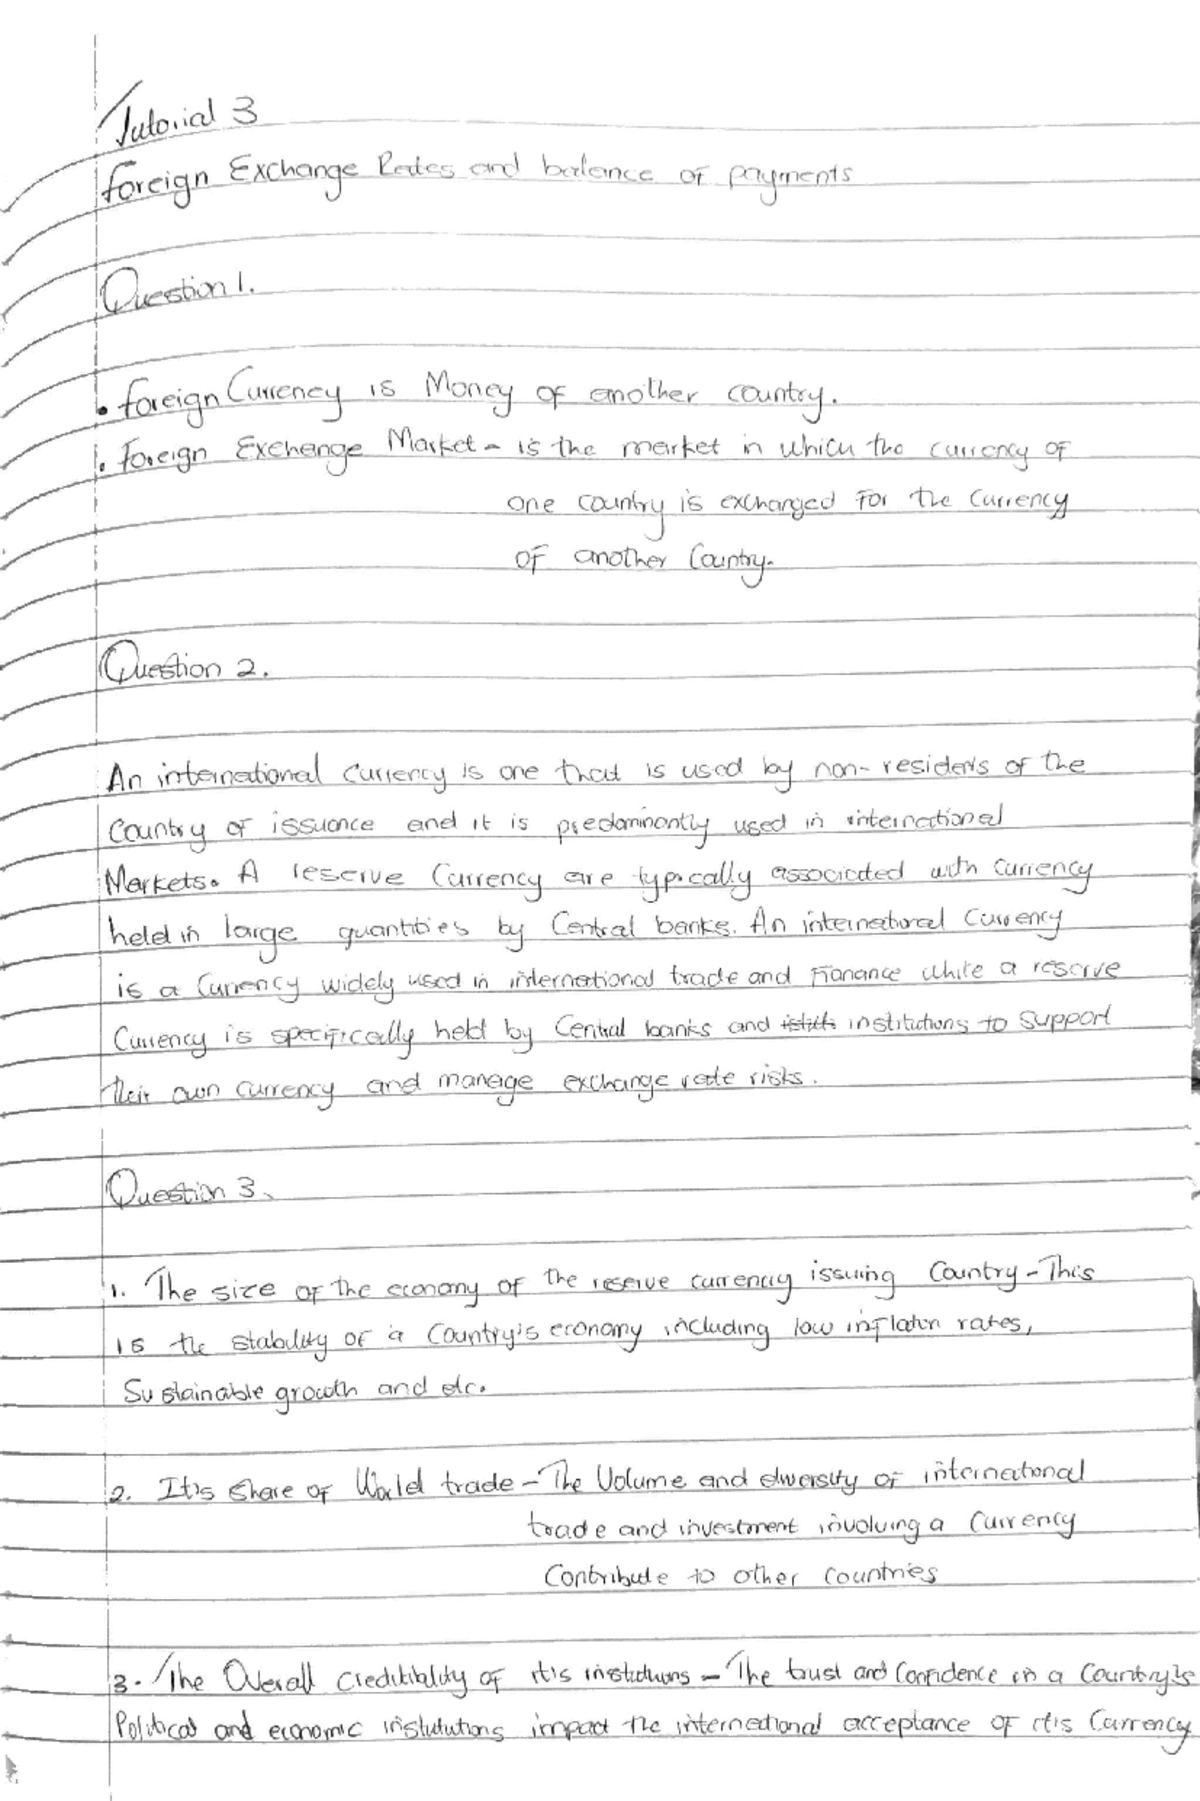 Tutorial 3
Foreign Exchange Rates and balance of payments
Question 1.
• Foreign Currency is Money of another country.
• Foreign Exchange Market - is the market in which the currency of
one country is exchanged for the currency
of another Country.
Question 2.
An international currency is one that is used by non-residents of the
Country of issuance and it is predominantly used in international
Markets. A reserve Currency are typically associated with currency
held in large quantities by Central banks. An international Currency
is a Currency widely used in international trade and finance while a reserve
Currency is specifically held by Central banks and institutions to support
their own currency and manage exchange rate risks.
Question 3.
1. The size of the economy of the reserve currency issuing Country - This
is the stability of a Country's economy including low inflation rates,
Sustainable growth and etc.
2. It's share of World trade - The Volume and diversity of international
trade and investment involving a Currency
Contribute to other countries
3. The Overall Creditibality of it's institutions - The trust and Confidence in a Country's
Political and economic institutions impact the international acceptance of it's Currency